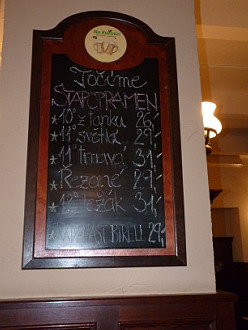 Točíme
STAROPRAMEN
* 10° z tanku 26,-
* 11° světlá 29,-
* 11° tmavá 31,-
* Řezané 29,-
* 12° ležák 31,-
29,-